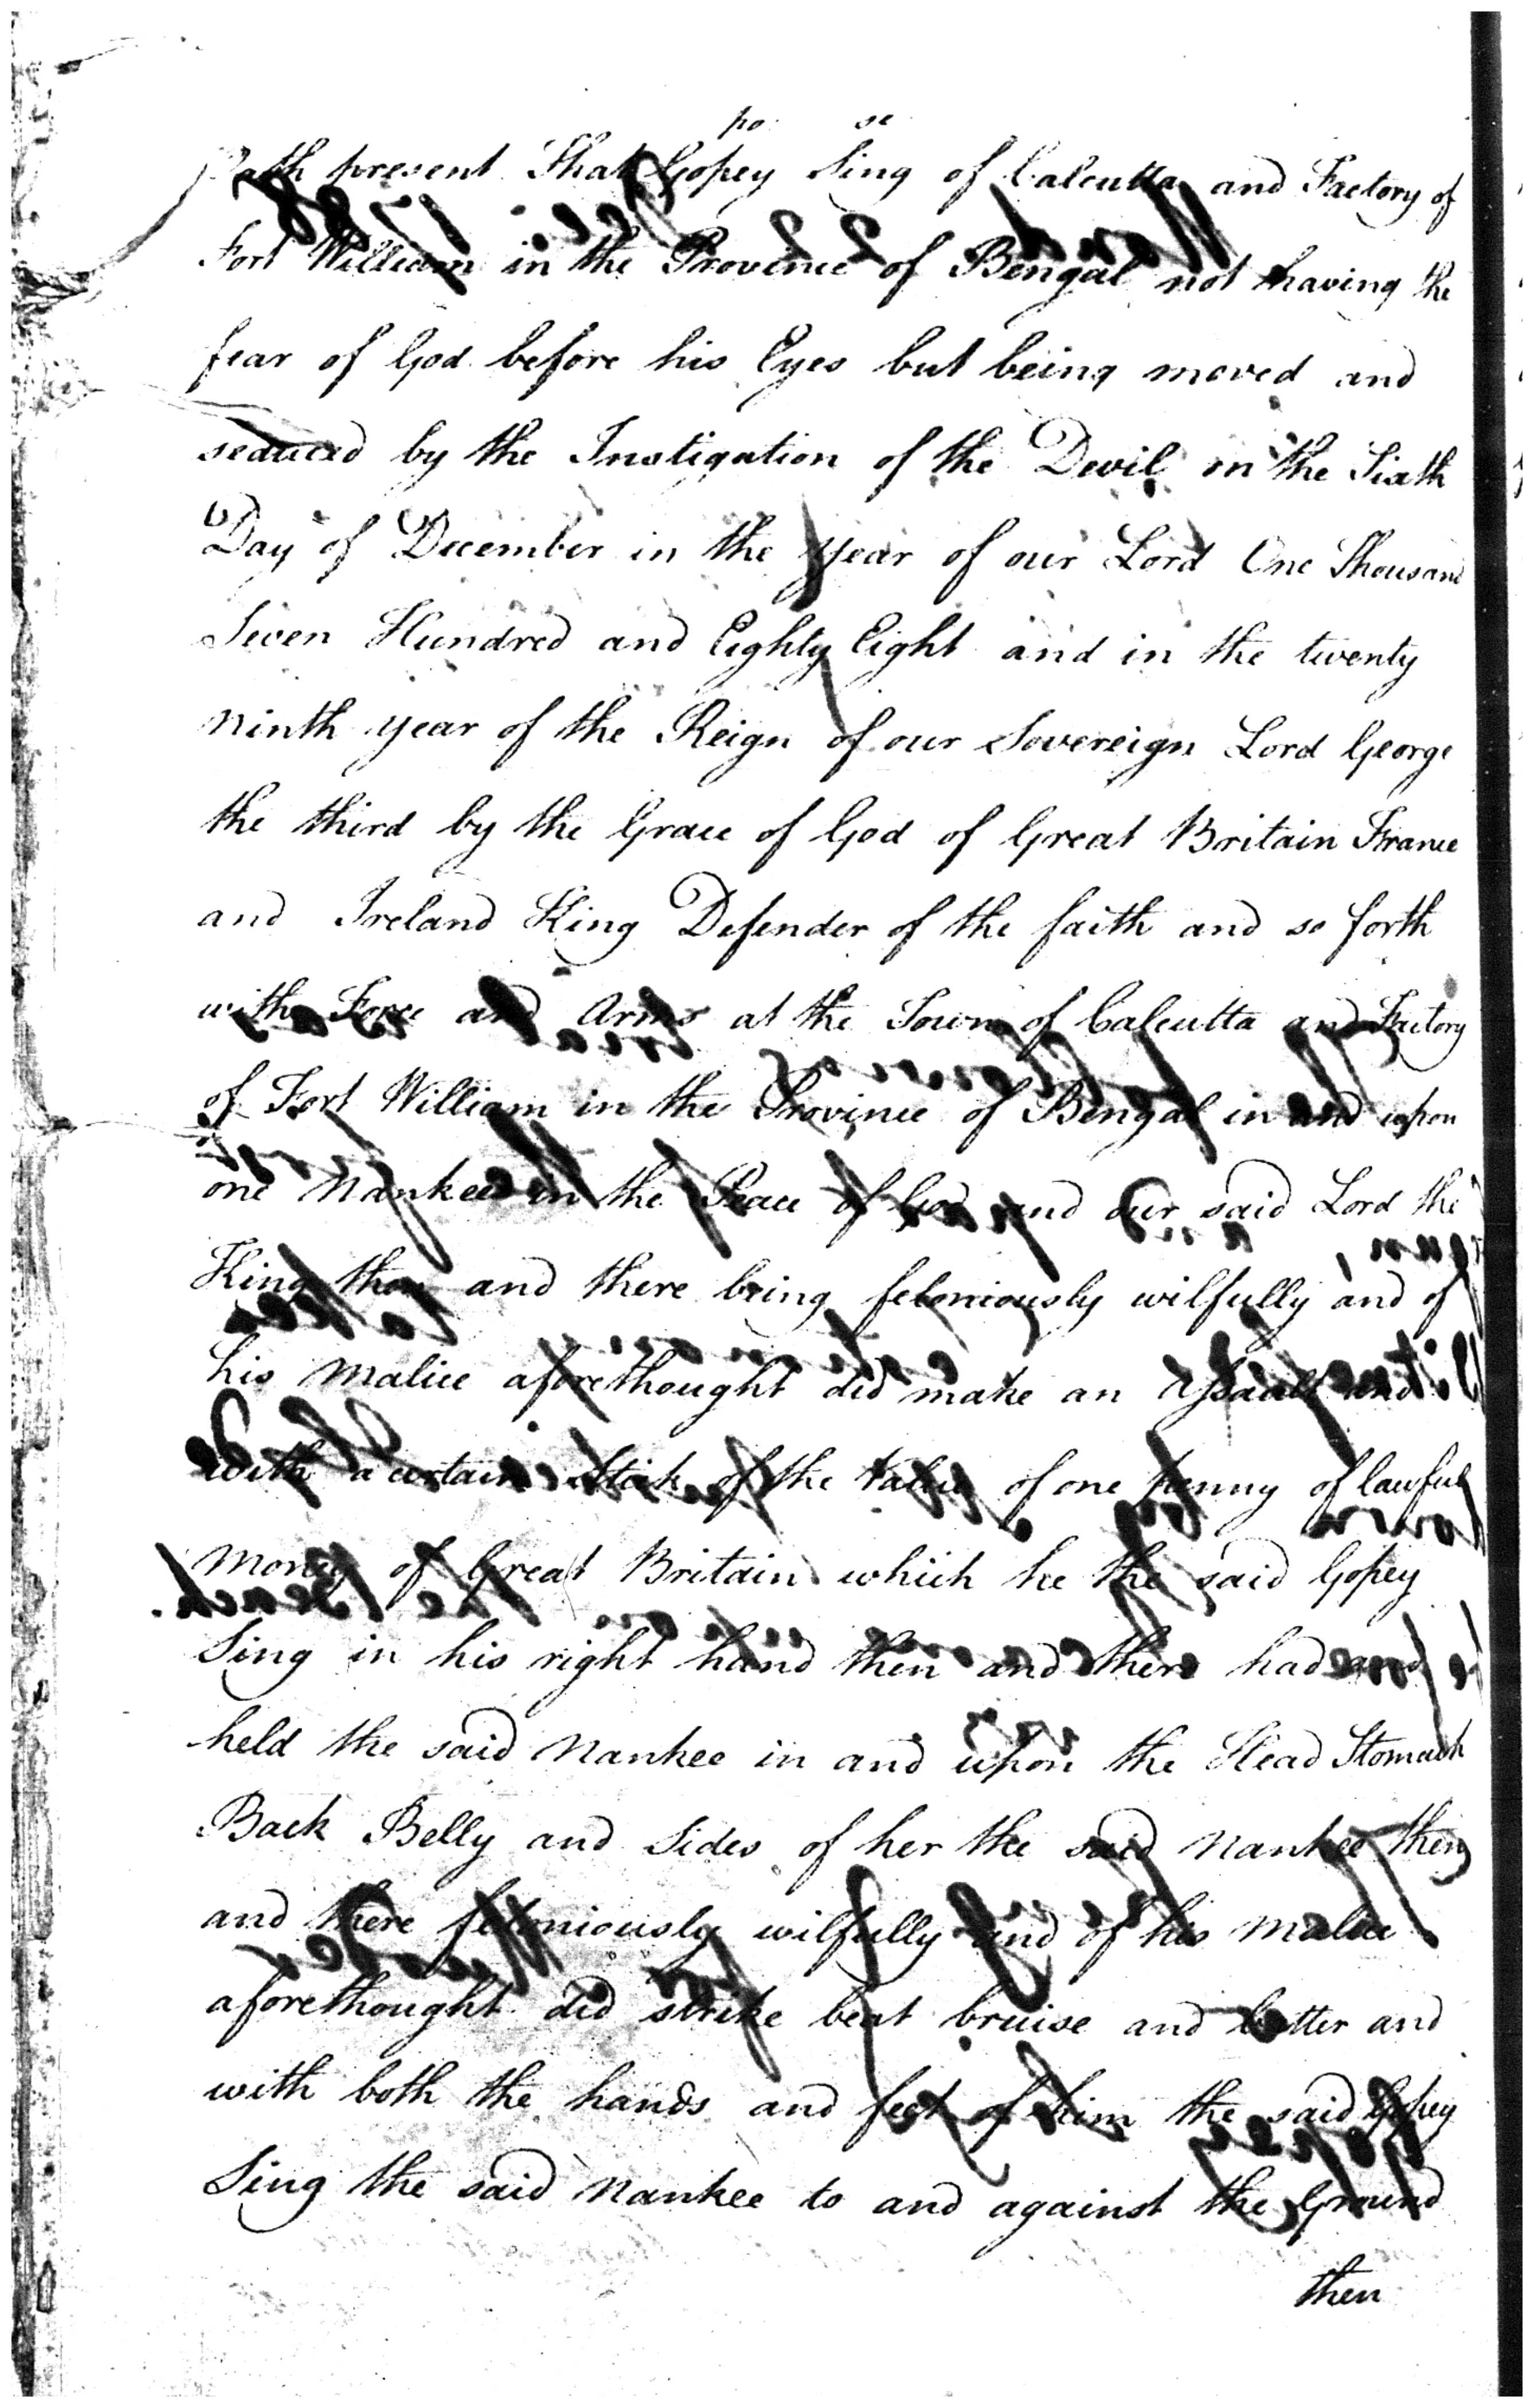 po se
Oath present That Gopey Sing of Calcutta and Factory of
Fort William in the Province of Bengal not having the
fear of God before his Eyes but being moved and
seduced by the Instigation of the Devil on the Sixth
Day of December in the year of our Lord One Thousand
Seven Hundred and Eighty Eight and in the twenty
ninth year of the Reign of our Sovereign Lord George
the third by the Grace of God of Great Britain France
and Ireland King Defender of the faith and so forth
with Force and Arms at the Town of Calcutta and Factory
of Fort William in the Province of Bengal in and upon
one Nankee in the Peace of God and our said Lord the
King then and there being feloniously wilfully and of
his malice aforethought did make an Assault and
with a certain Stick of the Value of one penny of lawful
money of Great Britain which he the said Gopey
Sing in his right hand then and there had and
held the said Nankee in and upon the Head Stomach
Back Belly and Sides of her the said Nankee then
and there feloniously wilfully and of his malice
aforethought did strike beat bruise and batter and
with both the hands and feet of him the said Gopey
Sing the said Nankee to and against the Ground
then